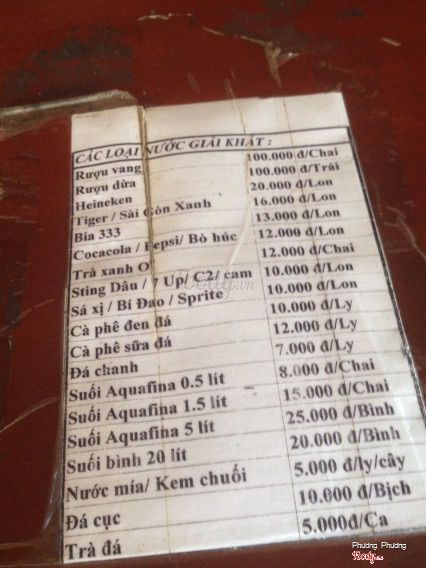 CÁC LOẠI NƯỚC GIẢI KHÁT :
Rượu vang 100.000 đ/Chai
Rượu dừa 100.000 đ/Trái
Heineken 20.000 đ/Lon
Tiger / Sài Gòn Xanh 16.000 đ/Lon
Bia 333 13.000 đ/Lon
Cocacola / Pepsi/ Bò húc 12.000 đ/Lon
Trà xanh O° 12.000 đ/Chai
Sting Dâu / 7 Up/ C2/ cam 10.000 đ/Lon
Sá xị / Bí Đao / Sprite 10.000 đ/Lon
Cà phê đen đá 10.000 đ/Ly
Cà phê sữa đá 12.000 đ/Ly
Đá chanh 7.000 đ/Ly
Suối Aquafina 0.5 lít 8.000 đ/Chai
Suối Aquafina 1.5 lít 15.000 đ/Chai
Suối Aquafina 5 lít 25.000 đ/Bình
Suối bình 20 lít 20.000 đ/Bình
Nước mía/ Kem chuối 5.000 đ/ly/cây
Đá cục 10.000 đ/Bịch
Trà đá 5.000đ/Ca
Phương Phương
Foody.vn